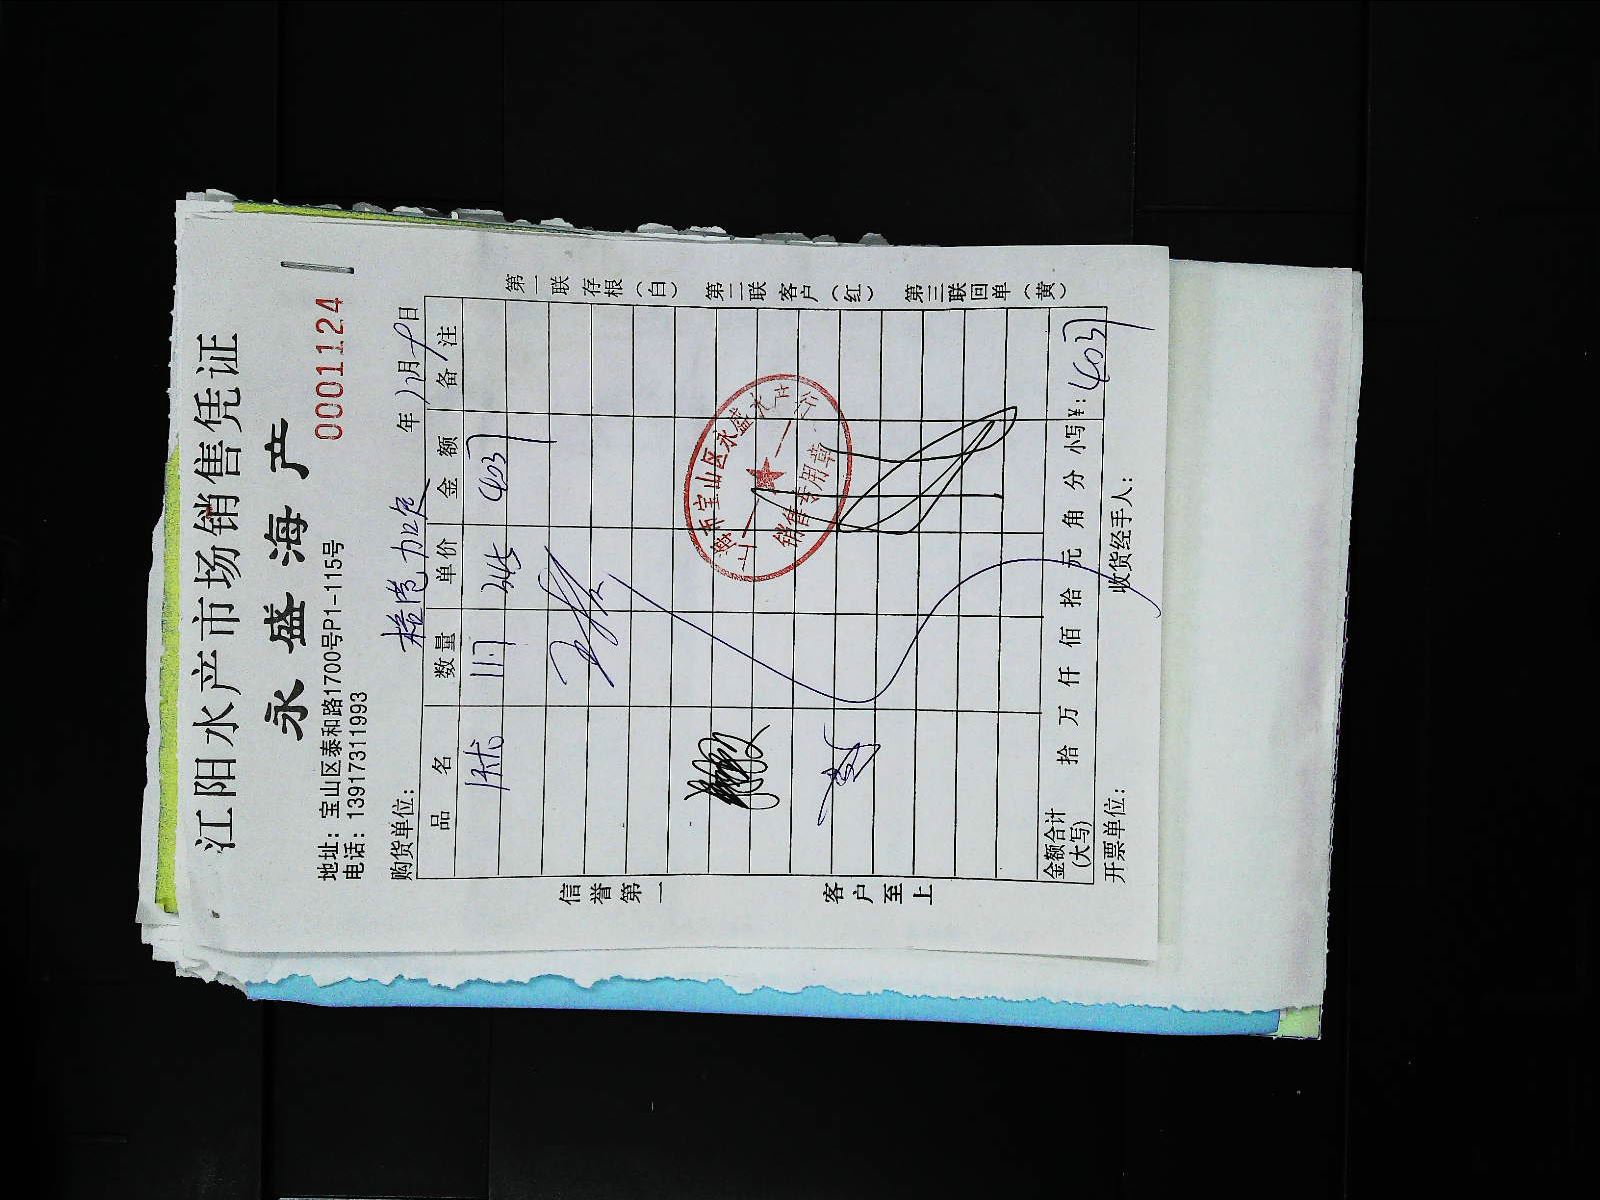 江阳水产市场销售凭证
永盛海产
0001124
地址：宝山区泰和路1700号P1-115号
电话：13917311993
购货单位：
年 12月9日
品名 数量 单价 金额 备注
11.7 34.5 403
信誉第一
客户至上
第一联存根（白） 第二联客户（红） 第三联回单（黄）
宝山区永盛水产
销售专用章
金额合计（大写） 拾 万 仟 佰 拾 元 角 分 小写¥：403
开票单位： 收货经手人：